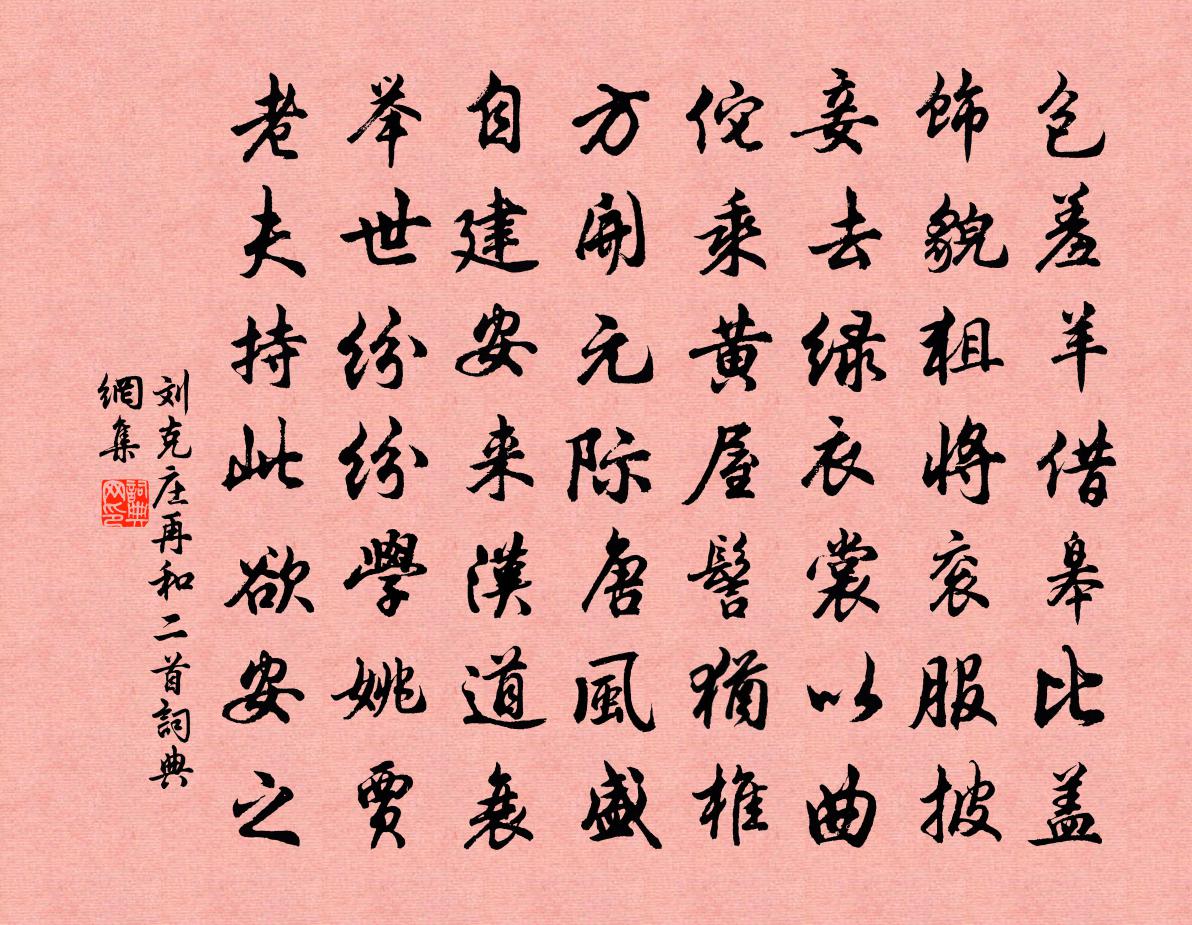 包羞羊借皋比盖
饰貌狙将衮服披
妾去绿衣裳以曲
佗乘黄屋髻猶椎
方開元际唐風盛
自建安来漢道衰
举世纷纷學姚贾
老夫持此欲安之
刘克庄再和二首詞典
網集
詞典
网印